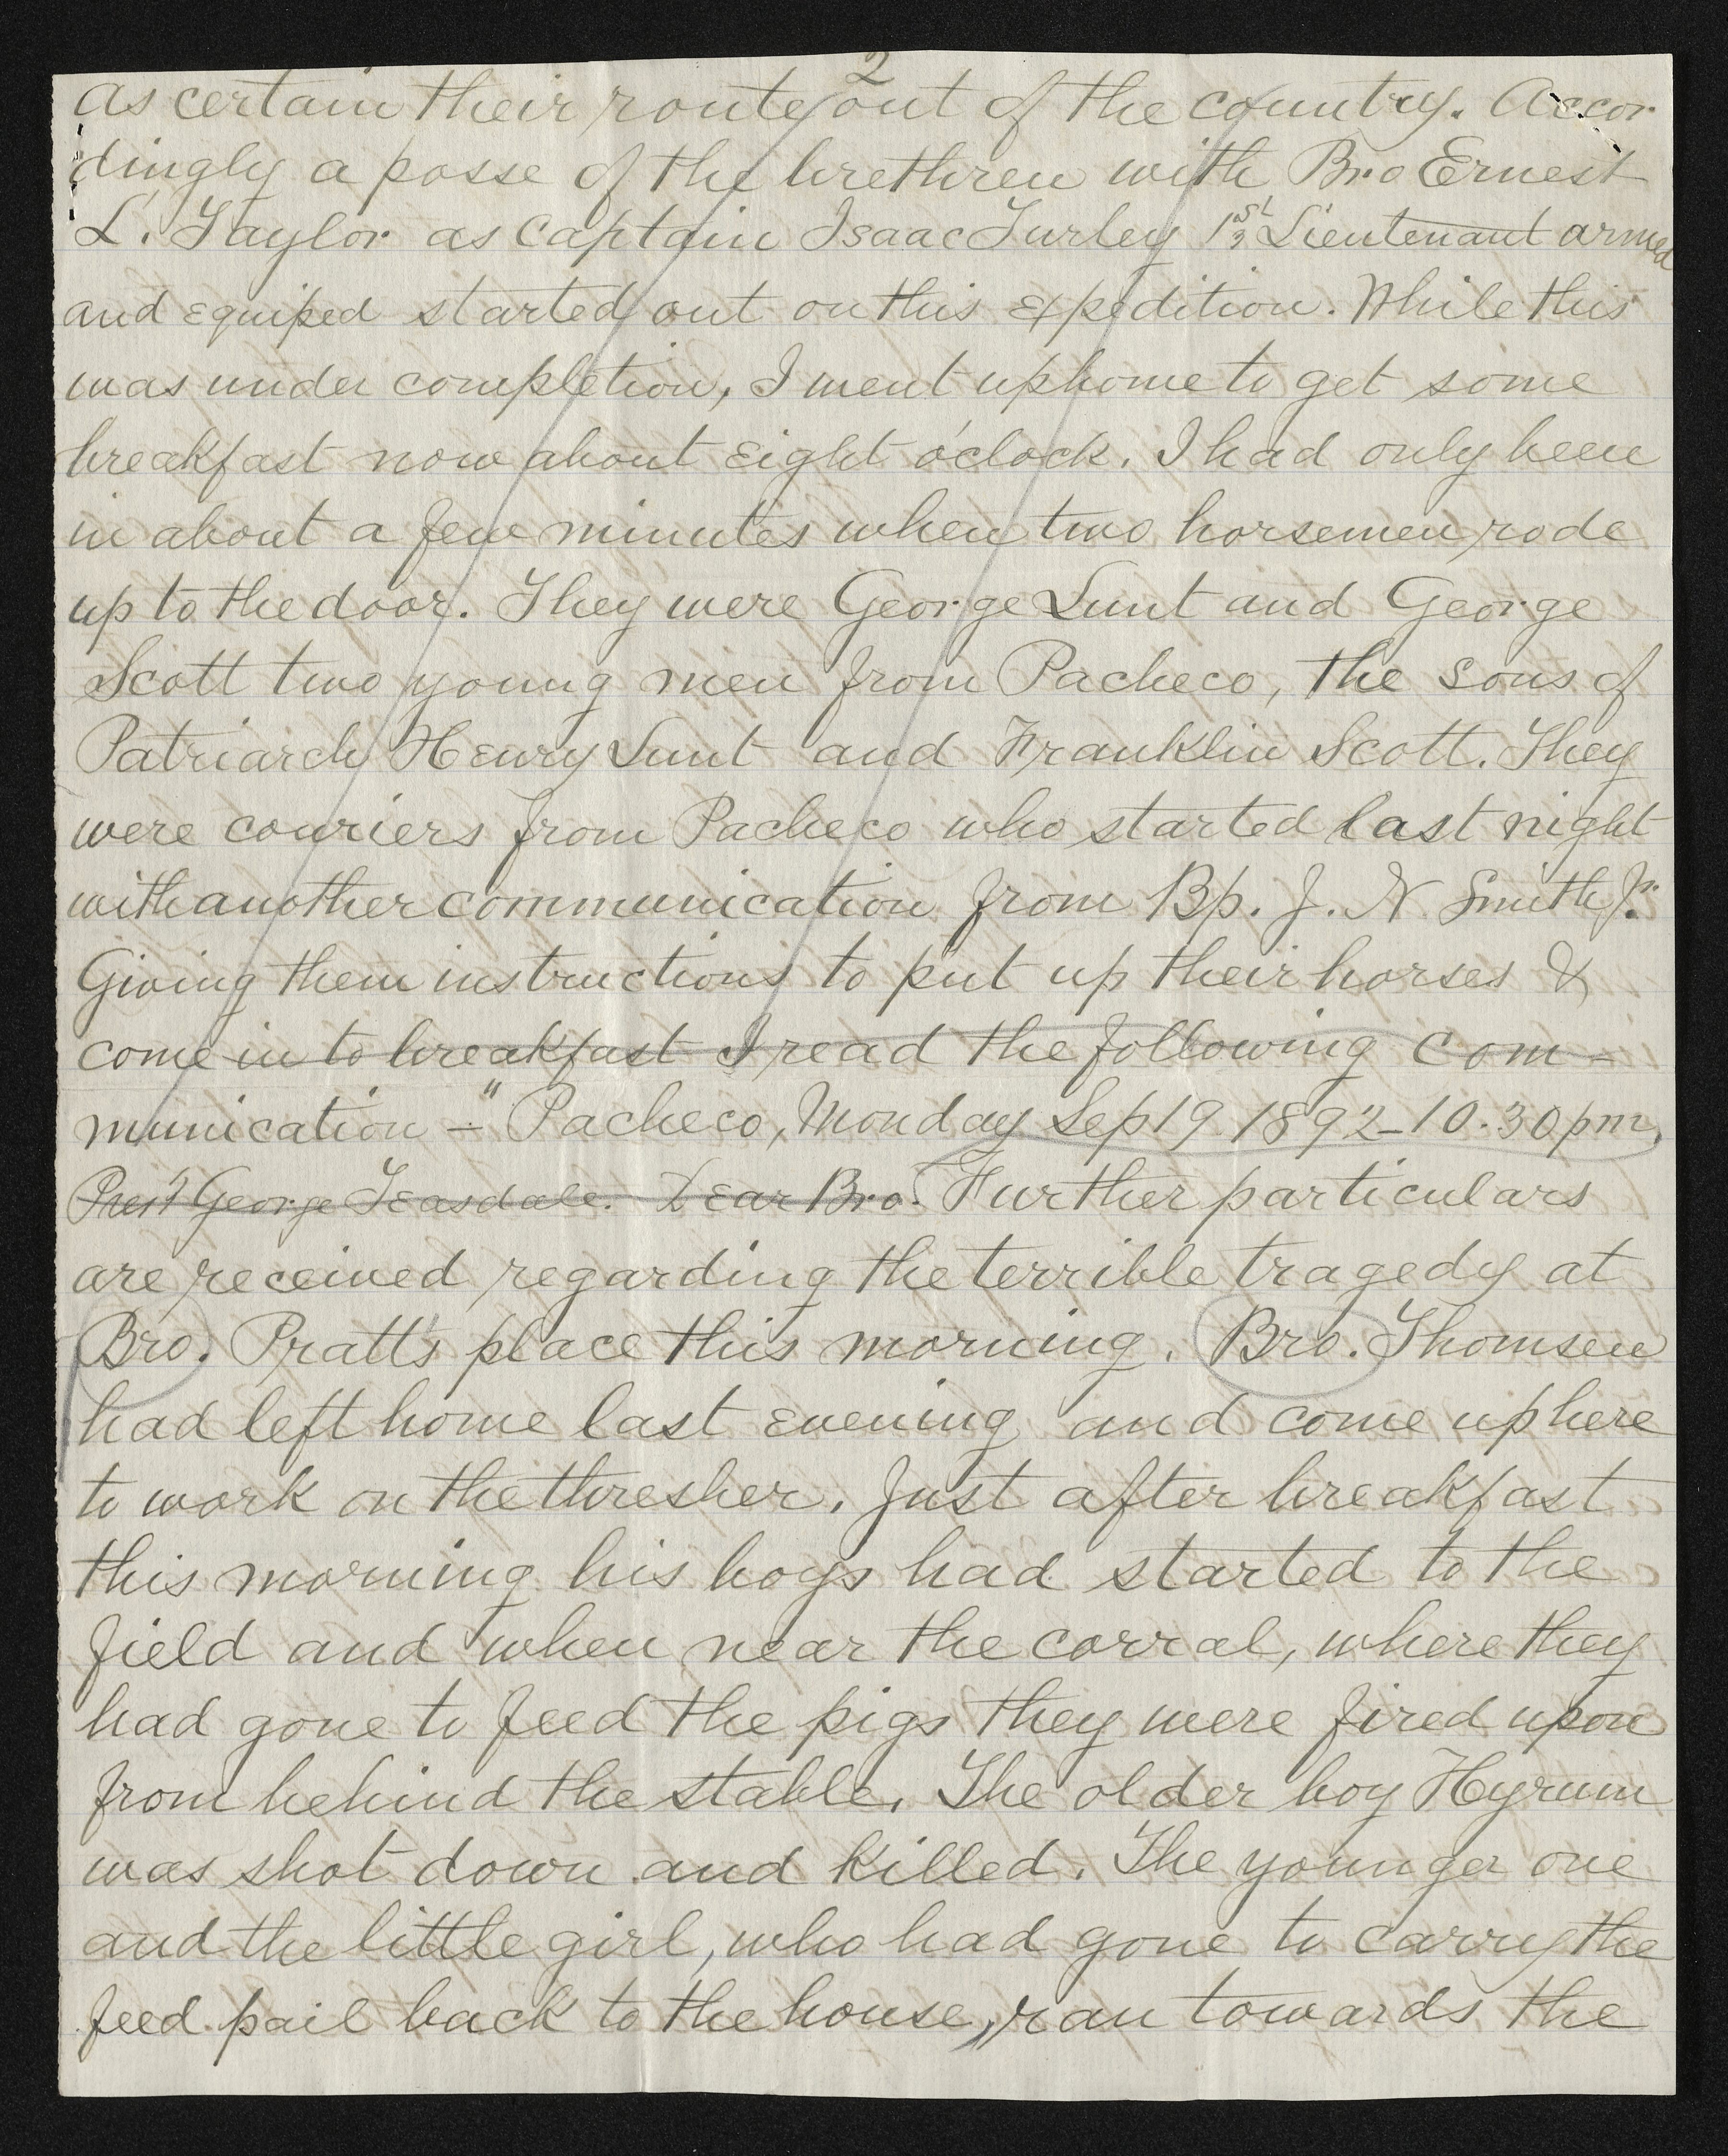 2
as certain their route out of the country. Accor
dingly a posse of the brethren with Bro Ernest
L. Taylor as captain Isaac Turley 1st Lieutenant armed
and equiped started out on this expedition. While this
was under completion, I went up home to get some
breakfast now about eight o'clock. I had only been
in about a few minutes when two horsemen rode
up to the door. They were George Lunt and George
Scott two young men from Pacheco, the sons of
Patriarch Henry Lunt and Franklin Scott. They
were couriers from Pacheco who started last night
with another communication from Bp. J. N. Smith Jr.
Giving them instructions to put up their horses &
come in to breakfast I read the following com-
munication - "Pacheco, Monday Sep 19 1892 - 10.30 pm,
Prest George Teasdale. Dear Bro. Further particulars
are received regarding the terrible tragedy at
Bro. Pratt's place this morning. Bro. Thomsen
had left home last evening and come up here
to work on the thresher. Just after breakfast
this morning his boys had started to the
field and when near the corral, where they
had gone to feed the pigs they were fired upon
from behind the stable. The older boy Hyrum
was shot down and killed. The younger one
and the little girl, who had gone to carry the
feed pail back to the house, ran towards the